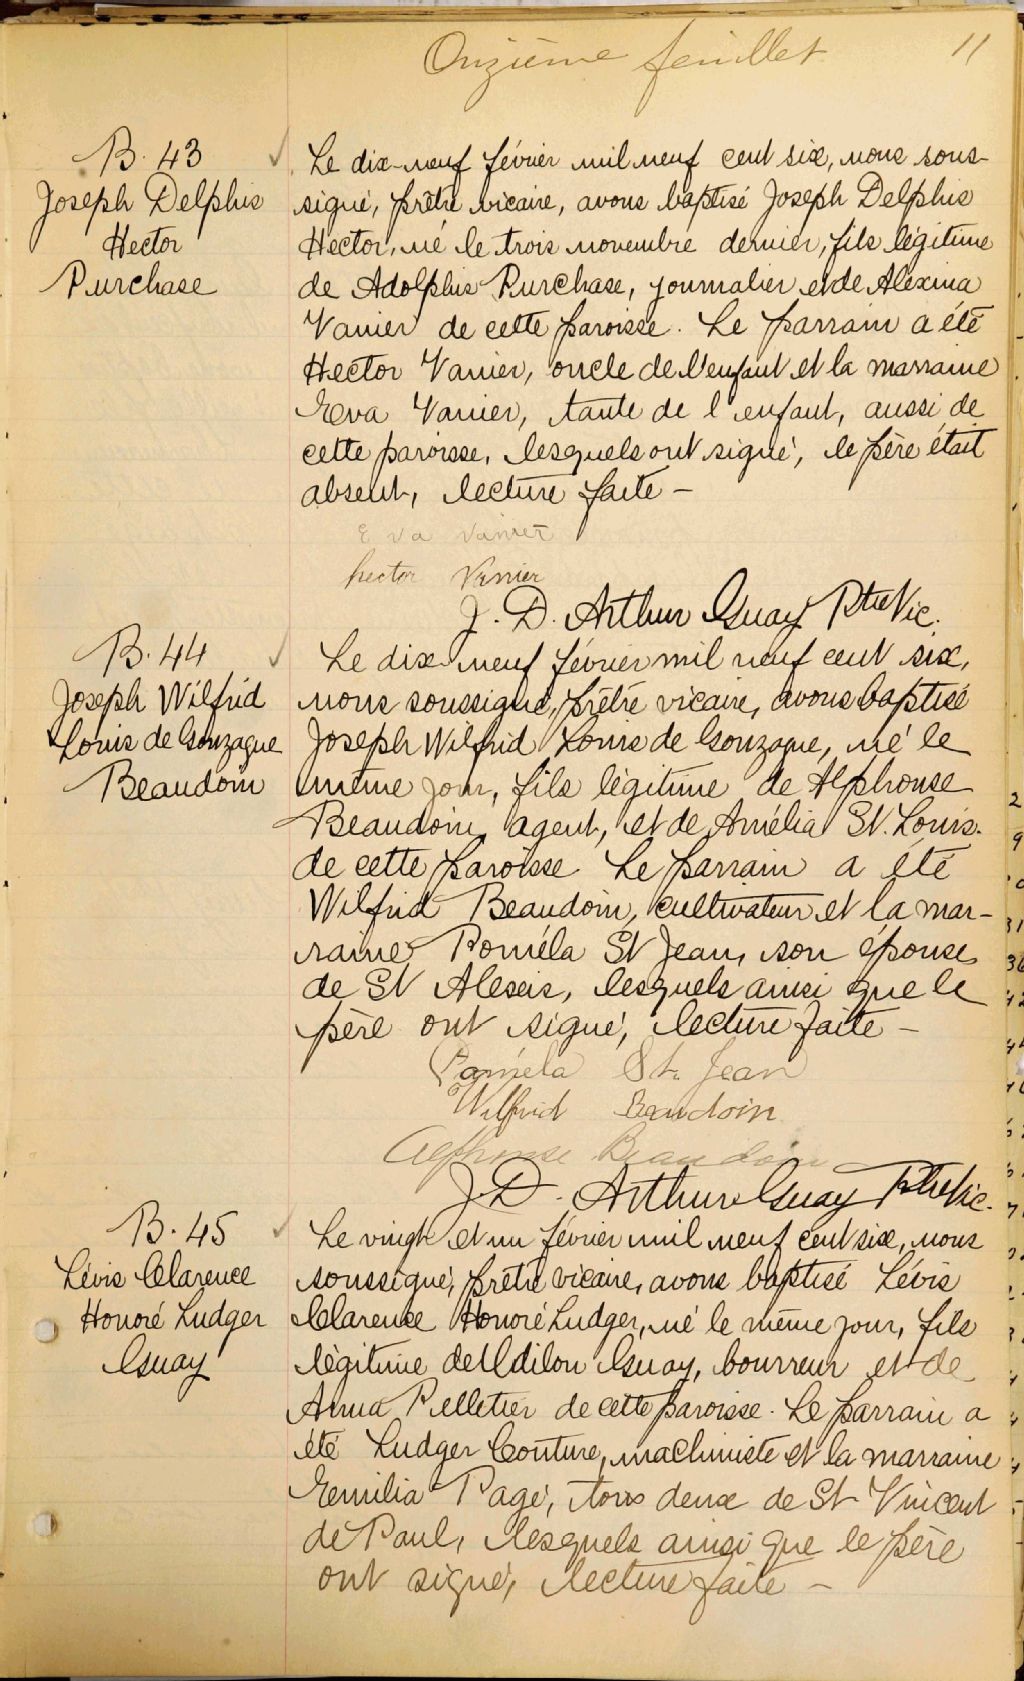 Onzième feuillet 11
B. 43
Joseph Delphis
Hector
Purchase
Le dix-neuf février mil neuf cent six, nous sous-
signé, prêtre vicaire, avons baptisé Joseph Delphis
Hector, né le trois novembre dernier, fils légitime
de Adolphis Purchase, journalier et de Aléxina
Vanier de cette paroisse. Le parrain a été
Hector Vanier, oncle de l'enfant et la marraine
Eva Vanier, tante de l'enfant, aussi de
cette paroisse, lesquels ont signé, le père était
absent, lecture faite -
Eva Vanier
hector Vanier
J. D. Arthur Guay Ptre Vic.
B. 44
Joseph Wilfrid
Louis de Gonzague
Beaudoin
Le dix-neuf février mil neuf cent six,
nous soussigné, prêtre vicaire, avons baptisé
Joseph Wilfrid Louis de Gonzague, né le
même jour, fils légitime de Alphonse
Beaudoin, agent, et de Amélia St. Louis.
de cette paroisse Le parrain a été
Wilfrid Beaudoin, cultivateur et la mar-
raine Poméla St Jean, son épouse
de St Alexis, lesquels ainsi que le
père ont signé, lecture faite -
Paméla St. Jean
Wilfrid Beaudoin
Alphonse Beaudoin
J. D. Arthur Guay Ptre Vic.
B. 45
Lévis Clarence
Honoré Ludger
Guay
Le vingt et un février mil neuf cent six, nous
soussigné, prêtre vicaire, avons baptisé Lévis
Clarence Honoré Ludger, né le même jour, fils
légitime de Odilon Guay, bourreur et de
Anna Pelletier de cette paroisse. Le parrain a
été Ludger Couture, machiniste et la marraine
Emilia Pagé, tous deux de St Vincent
de Paul, lesquels ainsi que le père
ont signé, lecture faite -